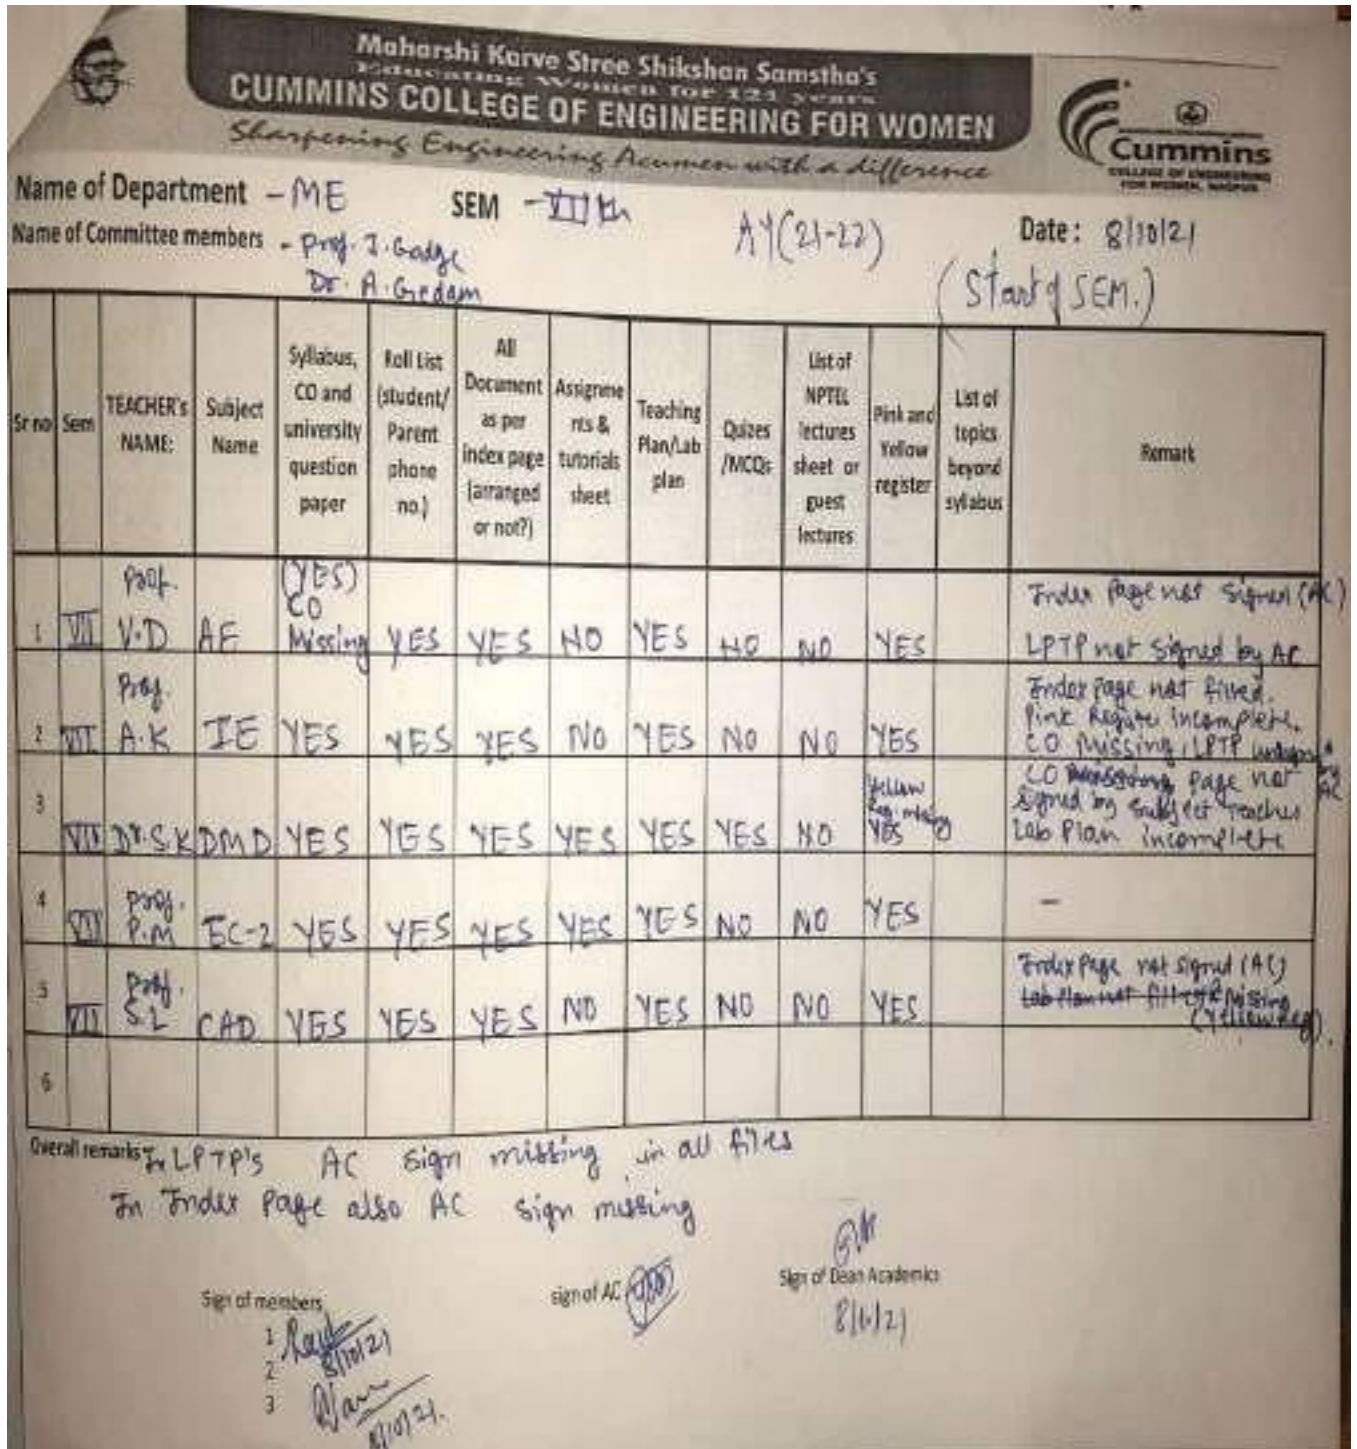 Maharshi Karve Stree Shikshan Samstha's
Educating Women for 121 years
CUMMINS COLLEGE OF ENGINEERING FOR WOMEN
Sharpening Engineering Acumen with a difference
Cummins
COLLEGE OF ENGINEERING
FOR WOMEN, NAGPUR
Name of Department - ME SEM - VIIth AY(21-22) Date: 8/10/21
Name of Committee members - Prof. J. Gadge
Dr. A. Gedam
(Start of SEM.)
Sr no Sem TEACHER's NAME: Subject Name Syllabus, CO and university question paper Roll List (student/ Parent phone no.) All Document as per index page (arranged or not?) Assignme nts & tutorials sheet Teaching Plan/Lab plan Quizes /MCQs List of NPTEL lectures sheet or guest lectures Pink and Yellow register List of topics beyond syllabus Remark
1 VII Prof. V.D AE (YES) CO Missing YES YES NO YES NO NO YES Index Page not signed (AC)
LPTP not signed by AC
2 VII Prof. A.K IE YES YES YES NO YES NO NO YES Index Page not filled.
Pink Register incomplete.
CO Missing, LPTP
3 VII Dr. S.K DMD YES YES YES YES YES YES NO Yellow Reg. missing YES CO Page not
signed by Subject Teacher
Lab Plan incomplete
4 VII Prof. P.M EC-2 YES YES YES YES YES NO NO YES –
5 VII Prof. S.L CAD YES YES YES NO YES NO NO YES Index Page not signed (AC)
Missing
(Yellow Reg).
6
Overall remarks In LPTP's AC sign missing in all files
In Index Page also AC sign missing
Sign of members
sign of AC
Sign of Dean Academics
1
2 8/10/21
3
8/10/21.